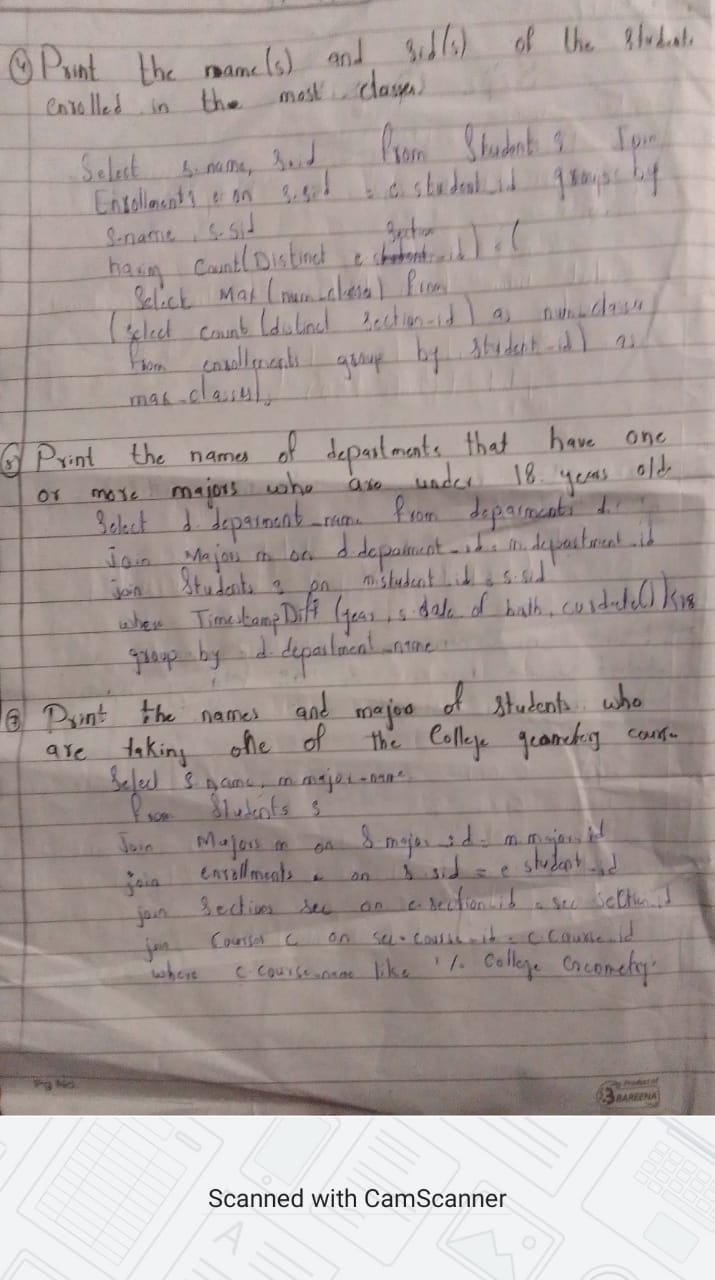 ④ Print the name(s) and sid(s) of the students
enrolled in the most classes
Select s.name, s.sid from Student s Join
Enrollments e on s.sid = e.student_id group by
s.name, s.sid
section
having Count(Distinct e id) = (
Select Max (num_classes) from
(select count (distinct section-id) as num_classes
from enrollments group by student_id) as
max-classes);
⑤ Print the names of departments that have one
or more majors who are under 18 years old
Select d.deparment_name from deparments d
join Majors m on d.depament_id = m.department_id
join Students s on m.student_id = s.sid
where TimestampDiff (year, s.date of bath, curdate()) < 18
group by d.department_name
Print the names and majors of students who
are taking one of the College geometry course
Select s.name, m.major-name
From Students s
Join Majors m on s.major_id = m.major_id
join enrollments e on s.sid = e.student_id
join Sections sec on e.section_id = sec.section_id
join Courses c on sec.course_id = c.course_id
where c.course_name like '% College Geometry.
Pg No.
A Product of
BAREENA
Scanned with CamScanner